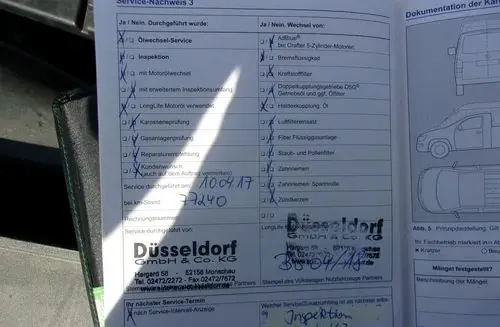 Service-Nachweis 3
Ja / Nein. Durchgeführt wurde:
Ölwechsel-Service
Inspektion
mit Motorölwechsel
mit erweitertem Inspektionsumfang
LongLife Motoröl verwendet
Karosserieprüfung
Gasanlagenprüfung
Reparaturempfehlung
Kundenwunsch
(auch auf dem Auftrag vermerken)
Service durchgeführt am: 10.04.17
bei km-Stand: 77240
Rechnungssumme
Service durchgeführt von:
Düsseldorf
GmbH & Co. KG
Hargard 58 · 52156 Monschau
Tel. 02472/2272 · Fax 02472/7672
Ihr nächster Service-Termin
nach Service-Intervall-Anzeige
Ja / Nein. Wechsel von:
AdBlue®
bei Crafter 5-Zylinder-Motoren,
Bremsflüssigkeit
Kraftstofffilter
Doppelkupplungsgetriebe DSG®
Getriebeöl und ggf. Ölfilter
Haldexkupplung, Öl
Luftfiltereinsatz
Filter Flüssiggasanlage
Staub- und Pollenfilter
Zahnriemen
Zahnriemen Spannrolle
Zündkerzen
Düsseldorf
GmbH & Co. KG
Stempel des Volkswagen Nutzfahrzeuge Partners
Inspektion
Dokumentation der
Abb. 5 Prinzipdarstellung. Gilt
Ihr Fachbetrieb markiert in
Kratzer
Mängel festgestellt?
Beschreibung der